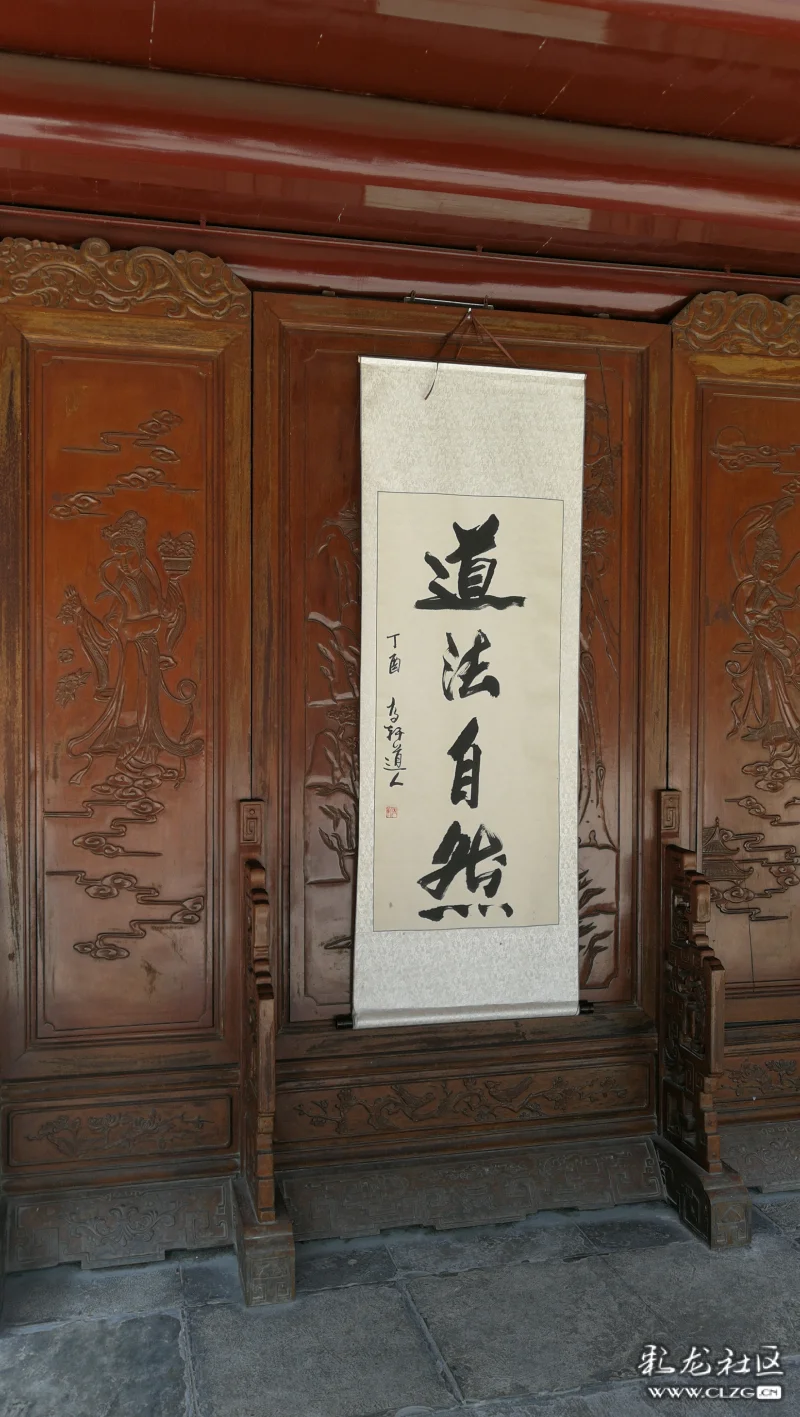 道法自然
丁酉
道人
彩龙社区
WWW.CLZG.CN